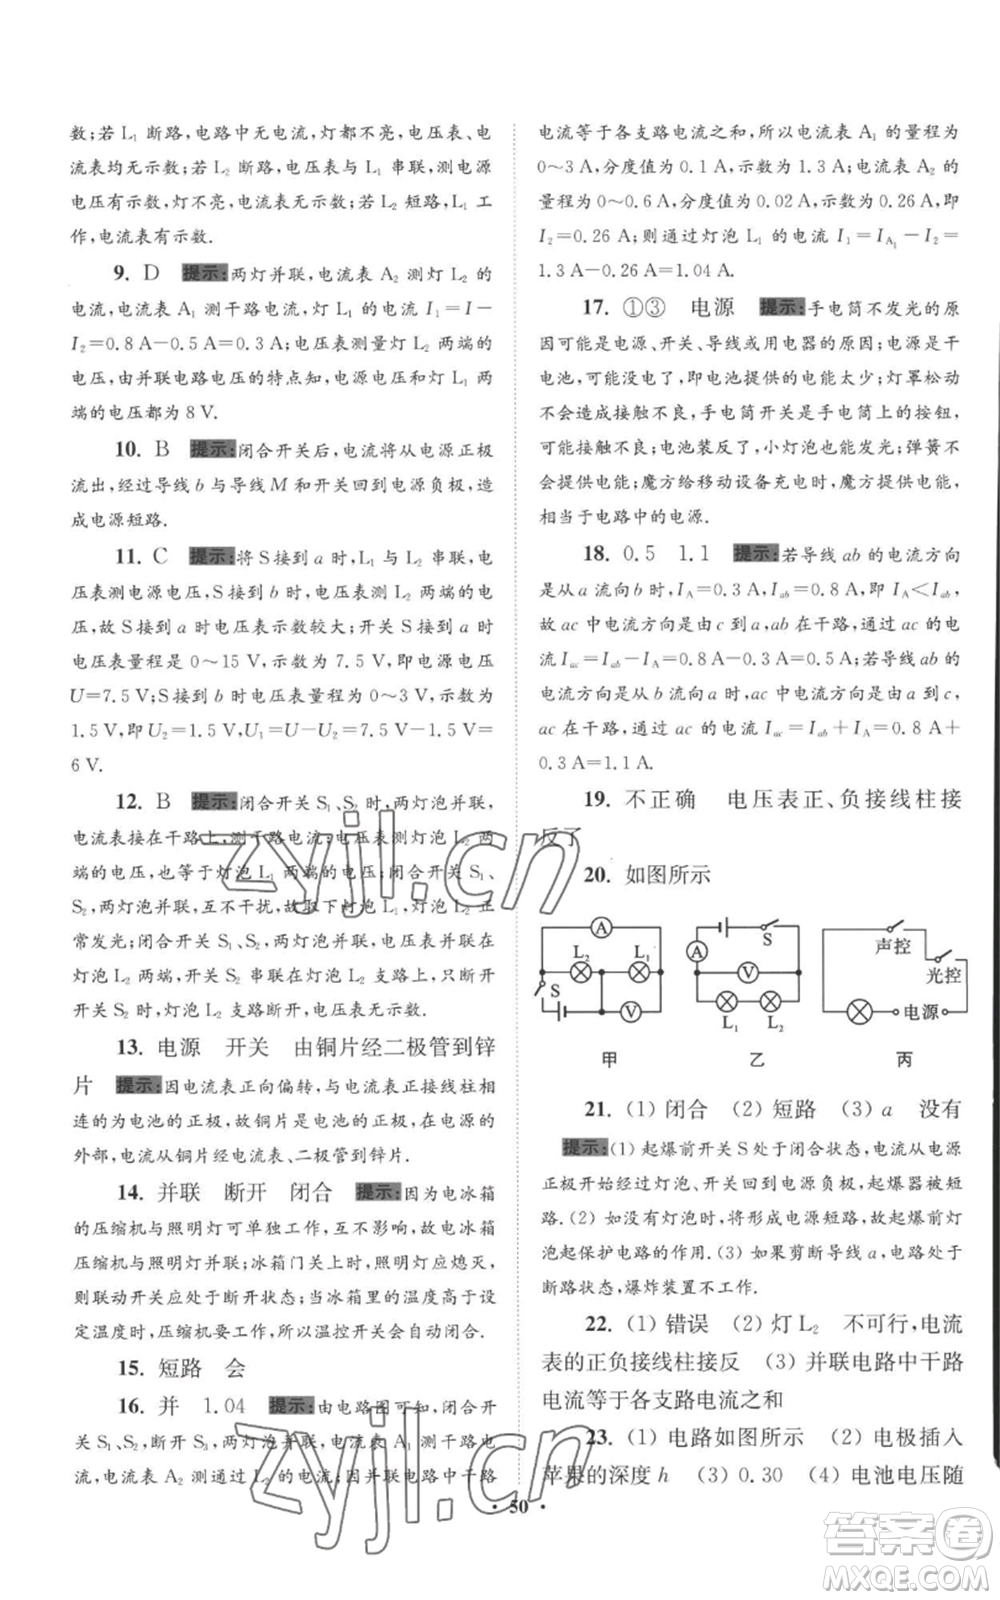 数;若 L₁ 断路,电路中无电流,灯都不亮,电压表、电
流表均无示数;若 L₂ 断路,电压表与 L₁ 串联,测电源
电压有示数,灯不亮,电流表无示数;若 L₂ 短路,L₁ 工
作,电流表有示数.
9. D 提示:两灯并联,电流表 A₂ 测灯 L₂ 的
电流,电流表 A₁ 测干路电流,灯 L₁ 的电流 I₁=I−
I₂=0.8 A−0.5 A=0.3 A;电压表测量灯 L₂ 两端的
电压,由并联电路电压的特点知,电源电压和灯 L₁ 两
端的电压都为 8 V.
10. B 提示:闭合开关后,电流将从电源正极
流出,经过导线 b 与导线 M 和开关回到电源负极,造
成电源短路.
11. C 提示:将 S 接到 a 时,L₁ 与 L₂ 串联,电
压表测电源电压,S 接到 b 时,电压表测 L₂ 两端的电
压,故 S 接到 a 时电压表示数较大;开关 S 接到 a 时
电压表量程是 0～15 V,示数为 7.5 V,即电源电压
U=7.5 V;S 接到 b 时电压表量程为 0～3 V,示数为
1.5 V,即 U₂=1.5 V,U₁=U−U₂=7.5 V−1.5 V=
6 V.
12. B 提示:闭合开关 S₁、S₂ 时,两灯泡并联,
电流表接在干路上,测干路电流;电压表测灯泡 L₁ 两
端的电压,也等于灯泡 L₂ 两端的电压;闭合开关 S₁、
S₂,两灯泡并联,互不干扰,故取下灯泡 L₁,灯泡 L₂ 正
常发光;闭合开关 S₁、S₂,两灯泡并联,电压表并联在
灯泡 L₂ 两端,开关 S₂ 串联在灯泡 L₂ 支路上,只断开
开关 S₂ 时,灯泡 L₂ 支路断开,电压表无示数.
13. 电源 开关 由铜片经二极管到锌
片 提示:因电流表正向偏转,与电流表正接线柱相
连的为电池的正极,故铜片是电池的正极,在电源的
外部,电流从铜片经电流表、二极管到锌片.
14. 并联 断开 闭合 提示:因为电冰箱
的压缩机与照明灯可单独工作,互不影响,故电冰箱
压缩机与照明灯并联;冰箱门关上,照明灯应熄灭,
则联动开关应处于断开状态;当冰箱里的温度高于设
定温度时,压缩机要工作,所以温控开关会自动闭合.
15. 短路 会
16. 并 1.04 提示:由电路图可知,闭合开
关 S₁、S₂,断开 S₃,两灯泡并联,电流表 A₁ 测干路电
流,电流表 A₂ 测灯泡 L₂ 的电流;因并联电路中干路
电流等于各支路电流之和,所以电流表 A₁ 的量程为
0～3 A,分度值为 0.1 A,示数为 1.3 A;电流表 A₂ 的
量程为 0～0.6 A,分度值为 0.02 A,示数为 0.26 A,即
I₂=0.26 A;则通过灯泡 L₁ 的电流 I₁=I_A₁−I₂=
1.3 A−0.26 A=1.04 A.
17. ①③ 电源 提示:手电筒不发光的原
因可能是电源、开关、导线或用电器的原因;电源是干
电池,可能是没电,即电池提供的电能太少;灯罩松动
不会造成接触不良,手电筒开关是塑料外壳的按钮,可
能接触不良;电池装反了,小灯泡也能发光;弹簧不
会提供电能;魔方给移动设备充电时,魔方提供电能,
相当于电路中的电源.
18. 0.5 1.1 提示:若导线 ab 的电流方向
是从 a 流向 b 时,I_A=0.3 A,I_ab=0.8 A,即 I_A<I_ab,
故 ac 中电流方向是由 c 到 a,ab 在干路,通过 ac 的电
流 I_ac=I_ab−I_A=0.8 A−0.3 A=0.5 A;若导线 ab 的
电流方向是从 b 流向 a 时,ac 中电流方向是由 a 到 c,
ac 在干路,通过 ac 的电流 I_ac=I_ab+I_A=0.8 A+
0.3 A=1.1 A.
19. 不正确 电压表正、负接线柱接
反了
20. 如图所示
A L₂ L₁ S V 甲
S A V L₁ L₂ 乙
声控 光控 电源 丙
21. (1) 闭合 (2) 短路 (3) a 没有
提示:(1) 起爆前开关 S 处于闭合状态,电流从电源
正极开始经过灯泡、开关回到电源负极,起爆器被短
路.(2) 如没有灯泡时,将形成电源短路,故起爆前灯
泡起保护电路的作用.(3) 如果剪断导线 a,电路处于
断路状态,爆炸装置不工作.
22. (1) 错误 (2) 灯 L₂ 不可行,电流
表的正负接线柱接反 (3) 并联电路中干路
电流等于各支路电流之和
23. (1) 电路如图所示 (2) 电极插入
苹果的深度 h (3) 0.30 (4) 电池电压随
· 50 ·
zyjl.cn
zyjl.cn
答案卷
MXQE.COM